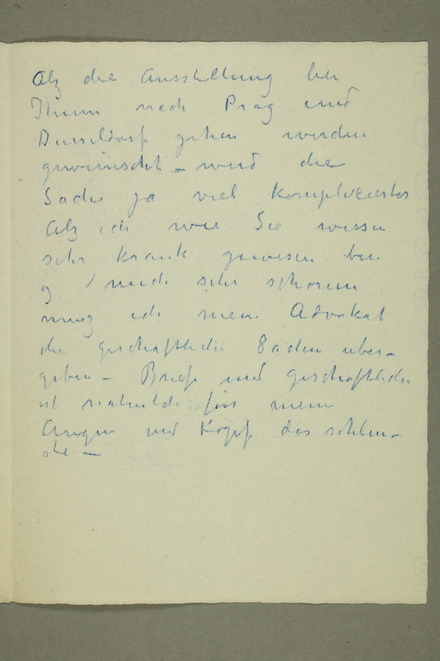 Alz die Ausstellung bei
Ihnen nach Prag und
Dusseldorf gehen werden
gewünscht – wird die
Sache ja viel komplizierter
Alz ich wie Sie wissen
sehr krank gewesen bin
und mich sehr schonen
muss ich mein Advokat
die geschäftliche Sachen uber-
geben – Brief und geschäftliche
ist für mein
Augen und Kopf das schlim-
ste –